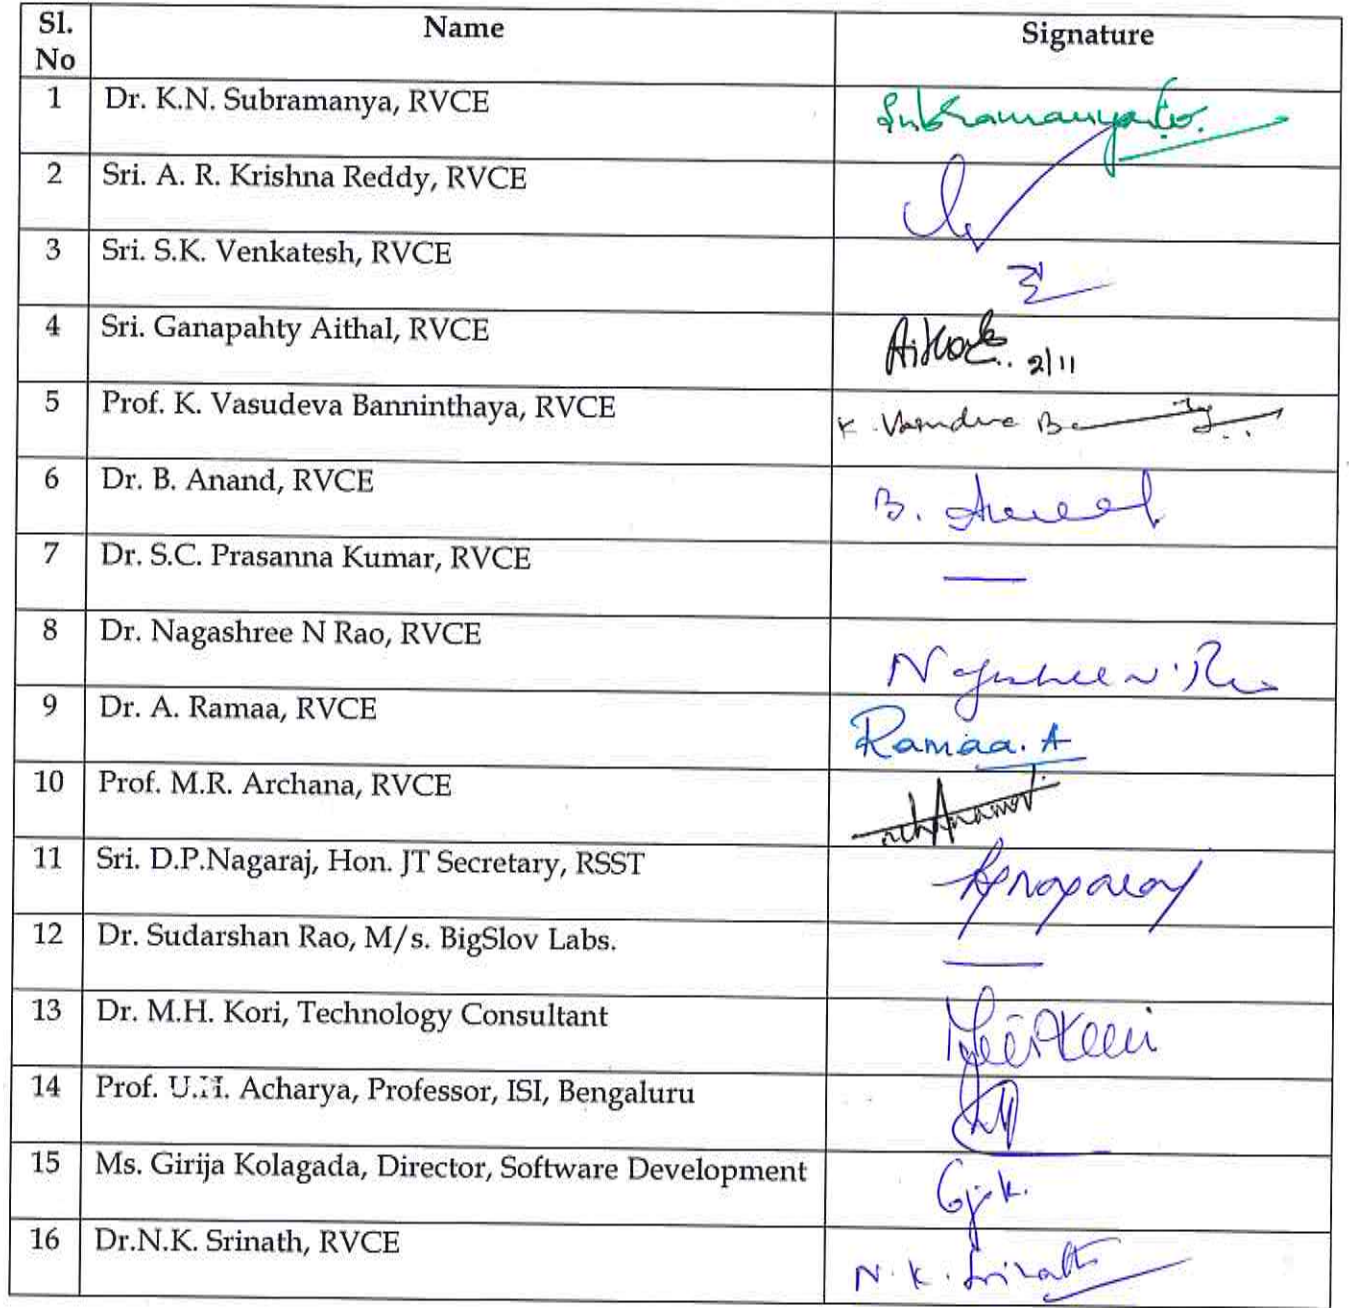 Sl. No Name Signature
1 Dr. K.N. Subramanya, RVCE Subramanya
2 Sri. A. R. Krishna Reddy, RVCE
3 Sri. S.K. Venkatesh, RVCE
4 Sri. Ganapahty Aithal, RVCE 2/11
5 Prof. K. Vasudeva Banninthaya, RVCE K. Vasudeva
6 Dr. B. Anand, RVCE B. Anand
7 Dr. S.C. Prasanna Kumar, RVCE —
8 Dr. Nagashree N Rao, RVCE Nagashree N. Rao
9 Dr. A. Ramaa, RVCE Ramaa. A
10 Prof. M.R. Archana, RVCE
11 Sri. D.P.Nagaraj, Hon. JT Secretary, RSST
12 Dr. Sudarshan Rao, M/s. BigSlov Labs. —
13 Dr. M.H. Kori, Technology Consultant
14 Prof. U.H. Acharya, Professor, ISI, Bengaluru
15 Ms. Girija Kolagada, Director, Software Development
16 Dr.N.K. Srinath, RVCE N. K. Srinath